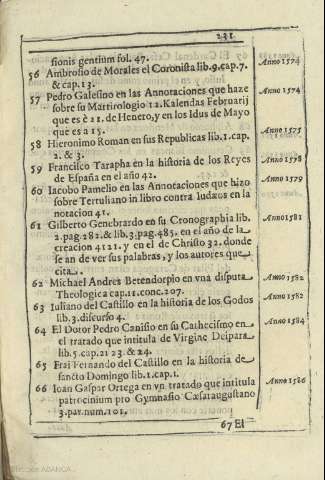 231
sionis gentium fol. 47.
56 Ambrosio de Morales el Coronista lib. 9. cap. 7. Anno 1574
& cap. 13.
57 Pedro Galesino en las Annotaciones que haze Anno 1574
sobre su Martirologio 12. Kalendas Februarij
que es è 21. de Henero, y en los Idus de Mayo
que es a 15. Anno 1575
58 Hieronimo Roman en sus Republicas lib. 1. cap.
2. & 3.
59 Francisco Tarapha en la historia de los Reyes Anno 1578
de España en el año 42.
60 Iacobo Pamelio en las Annotaciones que hizo Anno 1579
sobre Tertuliano in libro contra Iudæos en la
notacion 41.
61 Gilberto Genebrardo en su Cronographia lib. Anno 1581
2. pag. 282. & lib. 3. pag. 485. en el año de la
creacion 4121. y en el de Christo 32. donde
se an de ver sus palabras, y los autores que
cita.
62 Michael Andres Betendorpio en vna disputa Anno 1582
Theologica cap. 11. conc. 207.
63 Iuliano del Castillo en la historia de los Godos Anno 1582
lib. 3. discurso 4.
64 El Dotor Pedro Canisio en su Cathecismo en Anno 1584
el tratado que intitula de Virgine Deipara
lib. 5. cap. 21 23. & 24.
65 Frai Fernando del Castillo en la historia de
sancto Domingo lib. 1. cap. 1.
66 Ioan Gaspar Ortega en vn tratado que intitula Anno 1586
patrocinium pro Gymnasio Cæsaraugustano
3. par. num. 101.
67 El